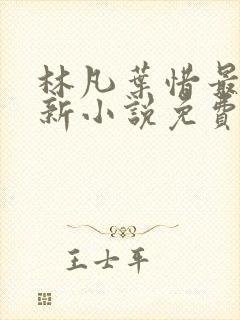 林凡葉惜最
新小說免費
王士平